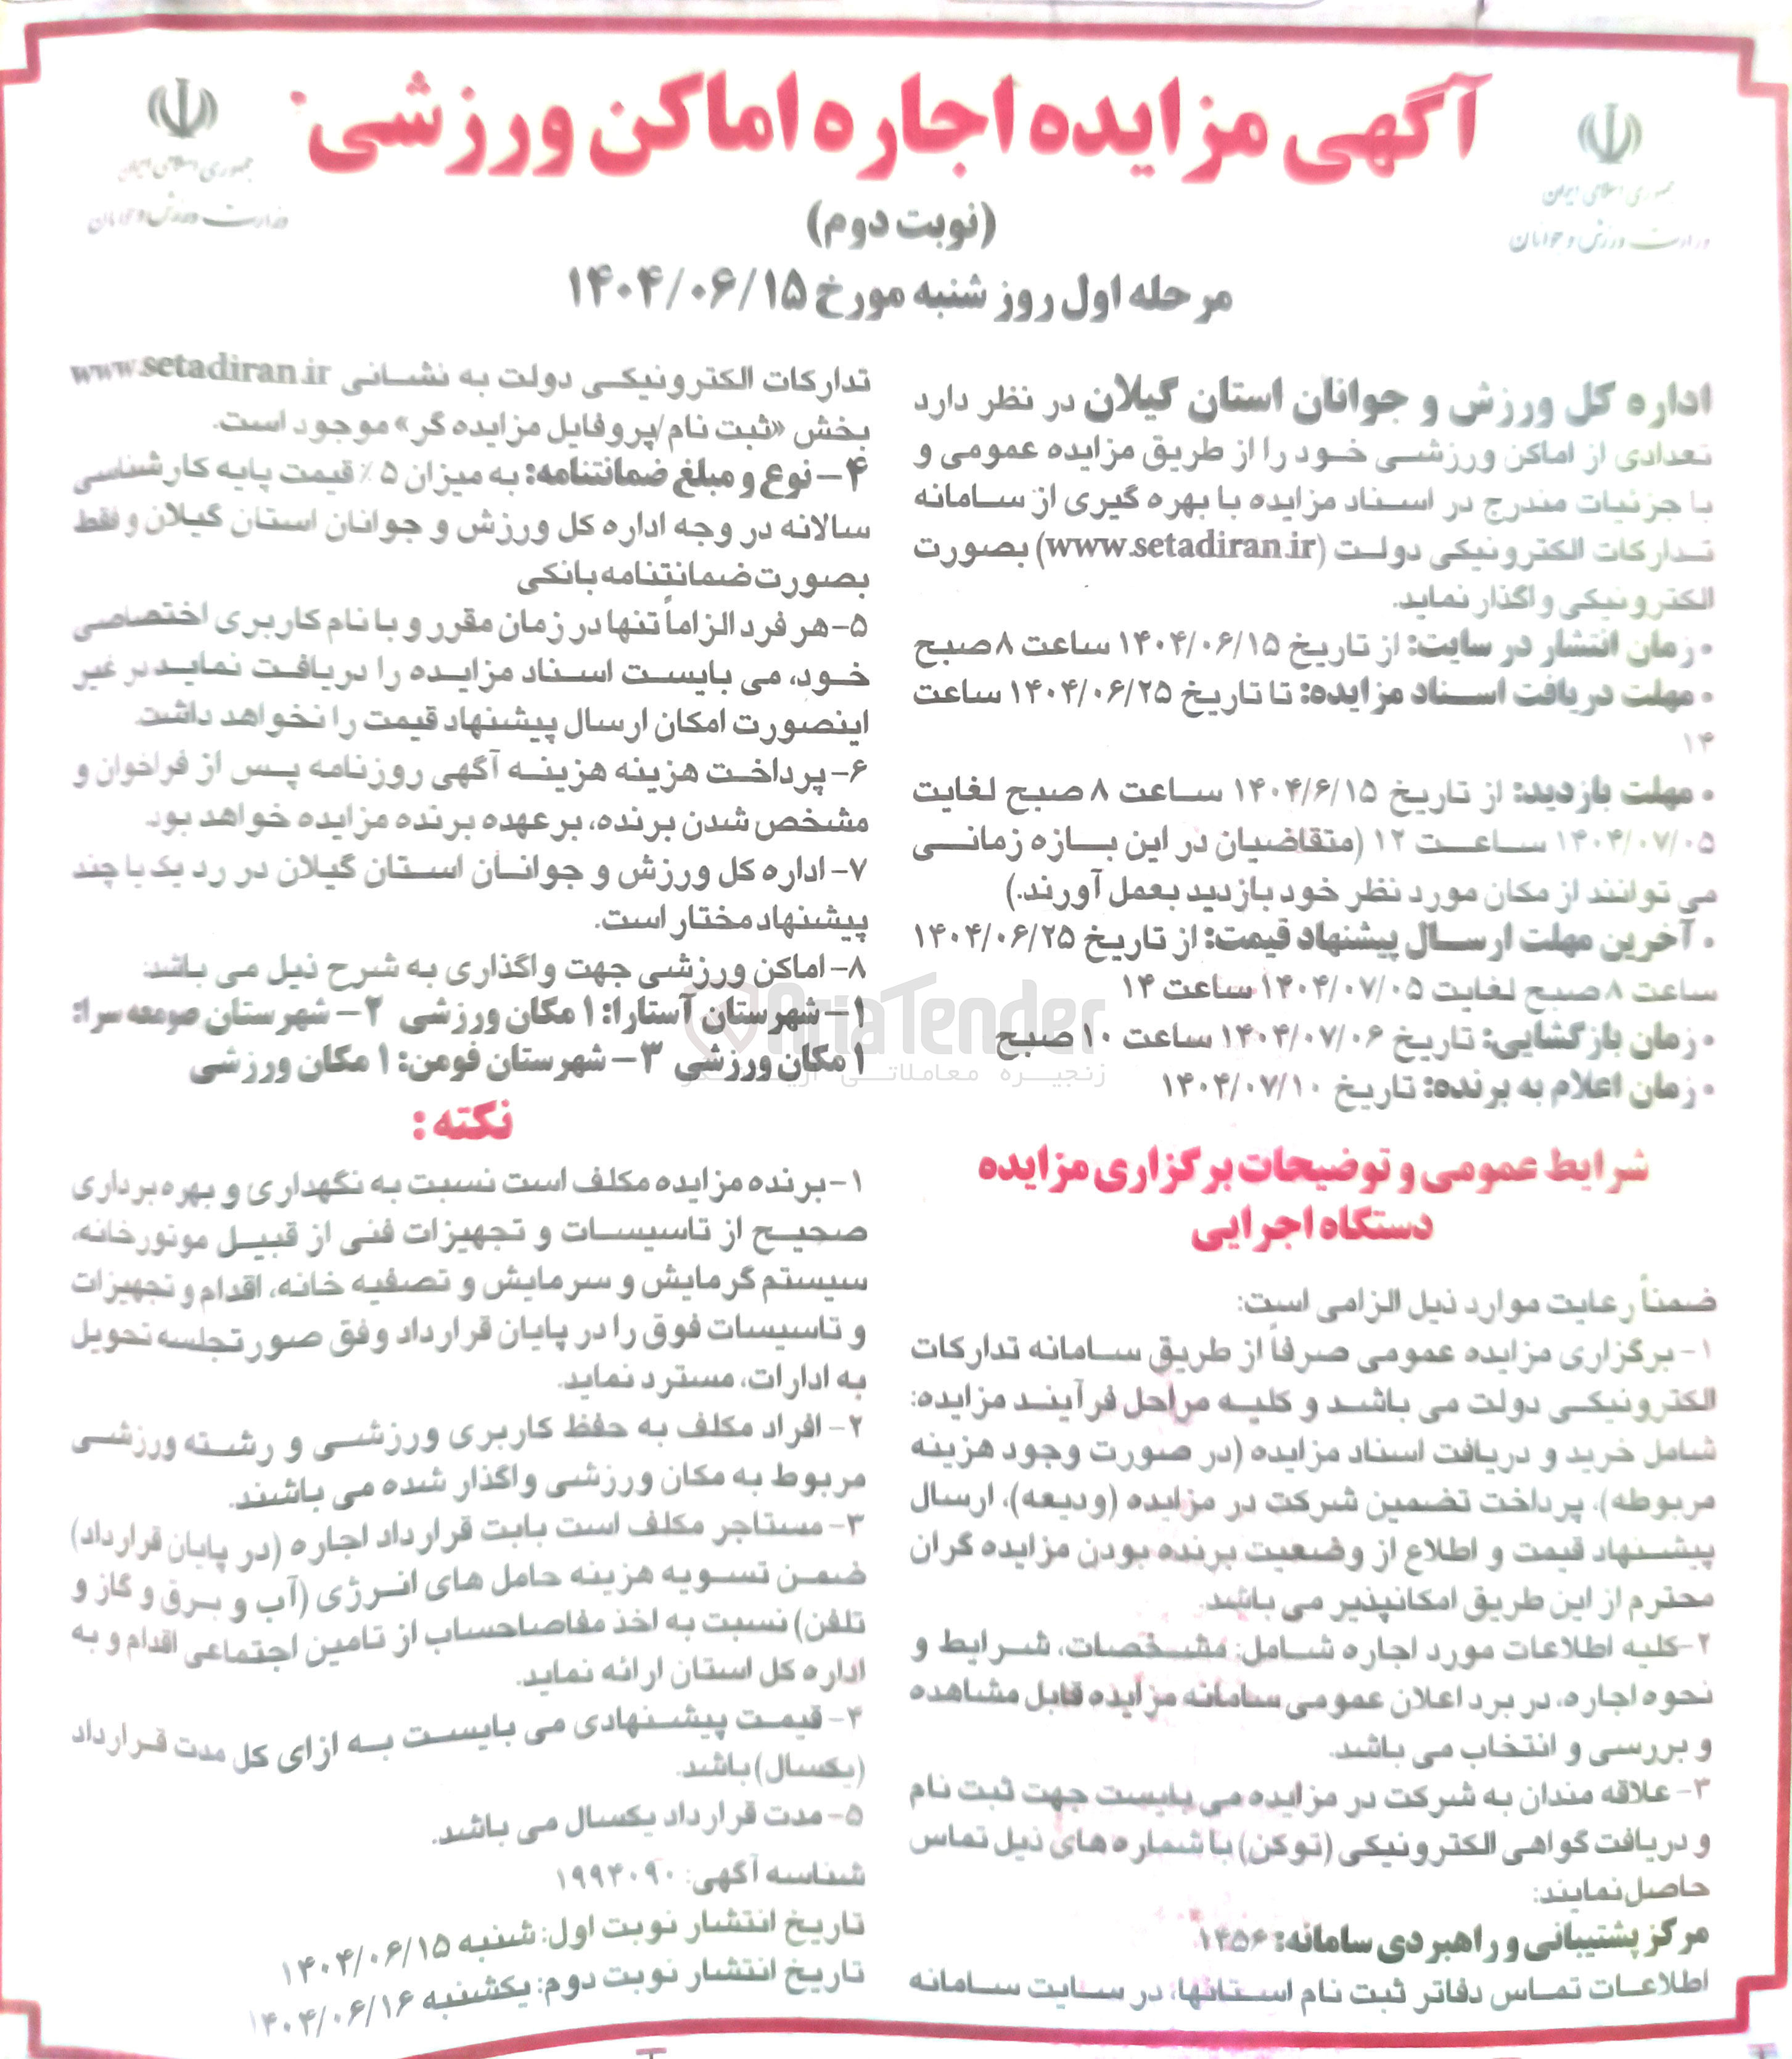 آگهی مزایده اجاره اماکن ورزشی
جمهوری اسلامی ایران
وزارت ورزش و جوانان
جمهوری اسلامی ایران
وزارت ورزش و جوانان
(نوبت دوم)
مرحله اول روز شنبه مورخ ۱۴۰۴/۰۶/۱۵
اداره کل ورزش و جوانان استان گیلان در نظر دارد
تعدادی از اماکن ورزشی خود را از طریق مزایده عمومی و
با جزئیات مندرج در اسناد مزایده با بهره گیری از سامانه
تدارکات الکترونیکی دولت (www.setadiran.ir) بصورت
الکترونیکی واگذار نماید.
• زمان انتشار در سایت: از تاریخ ۱۴۰۴/۰۶/۱۵ ساعت ۸ صبح
• مهلت دریافت اسناد مزایده: تا تاریخ ۱۴۰۴/۰۶/۲۵ ساعت
۱۴
• مهلت بازدید: از تاریخ ۱۴۰۴/۶/۱۵ ساعت ۸ صبح لغایت
۱۴۰۴/۰۷/۰۵ ساعت ۱۲ (متقاضیان در این بازه زمانی
می توانند از مکان مورد نظر خود بازدید بعمل آورند.)
• آخرین مهلت ارسال پیشنهاد قیمت: از تاریخ ۱۴۰۴/۰۶/۲۵
ساعت ۸ صبح لغایت ۱۴۰۴/۰۷/۰۵ ساعت ۱۴
• زمان بازگشایی: تاریخ ۱۴۰۴/۰۷/۰۶ ساعت ۱۰ صبح
• زمان اعلام به برنده: تاریخ ۱۴۰۴/۰۷/۱۰
شرایط عمومی و توضیحات برگزاری مزایده
دستگاه اجرایی
ضمناً رعایت موارد ذیل الزامی است:
۱- برگزاری مزایده عمومی صرفاً از طریق سامانه تدارکات
الکترونیکی دولت می باشد و کلیه مراحل فرآیند مزایده:
شامل خرید و دریافت اسناد مزایده (در صورت وجود هزینه
مربوطه)، پرداخت تضمین شرکت در مزایده (ودیعه)، ارسال
پیشنهاد قیمت و اطلاع از وضعیت برنده بودن مزایده گران
محترم از این طریق امکانپذیر می باشد.
۲-کلیه اطلاعات مورد اجاره شامل: مشخصات، شرایط و
نحوه اجاره، در برد اعلان عمومی سامانه مزایده قابل مشاهده
و بررسی و انتخاب می باشد.
۳- علاقه مندان به شرکت در مزایده می بایست جهت ثبت نام
و دریافت گواهی الکترونیکی (توکن) با شماره های ذیل تماس
حاصل نمایند:
مرکز پشتیبانی و راهبردی سامانه: ۱۴۵۶
اطلاعات تماس دفاتر ثبت نام استانها، در سایت سامانه
تدارکات الکترونیکی دولت به نشانی www.setadiran.ir
بخش «ثبت نام/پروفایل مزایده گر» موجود است.
۴- نوع و مبلغ ضمانتنامه: به میزان ۵٪ قیمت پایه کارشناسی
سالانه در وجه اداره کل ورزش و جوانان استان گیلان و فقط
بصورت ضمانتنامه بانکی
۵- هر فرد الزاماً تنها در زمان مقرر و با نام کاربری اختصاصی
خود، می بایست اسناد مزایده را دریافت نماید در غیر
اینصورت امکان ارسال پیشنهاد قیمت را نخواهد داشت.
۶- پرداخت هزینه هزینه آگهی روزنامه پس از فراخوان و
مشخص شدن برنده، برعهده برنده مزایده خواهد بود.
۷- اداره کل ورزش و جوانان استان گیلان در رد یک یا چند
پیشنهاد مختار است.
۸- اماکن ورزشی جهت واگذاری به شرح ذیل می باشد:
۱- شهرستان آستارا: ۱ مکان ورزشی ۲- شهرستان صومعه سرا:
۱ مکان ورزشی ۳- شهرستان فومن: ۱ مکان ورزشی
نکته:
۱- برنده مزایده مکلف است نسبت به نگهداری و بهره برداری
صحیح از تاسیسات و تجهیزات فنی از قبیل موتورخانه،
سیستم گرمایش و سرمایش و تصفیه خانه، اقدام و تجهیزات
و تاسیسات فوق را در پایان قرارداد وفق صورتجلسه تحویل
به ادارات، مسترد نماید.
۲- افراد مکلف به حفظ کاربری ورزشی و رشته ورزشی
مربوط به مکان ورزشی واگذار شده می باشند.
۳- مستاجر مکلف است بابت قرارداد اجاره (در پایان قرارداد)
ضمن تسویه هزینه حامل های انرژی (آب و برق و گاز و
تلفن) نسبت به اخذ مفاصاحساب از تامین اجتماعی اقدام و به
اداره کل استان ارائه نماید.
۴- قیمت پیشنهادی می بایست به ازای کل مدت قرارداد
(یکسال) باشد.
۵- مدت قرارداد یکسال می باشد.
شناسه آگهی: ۱۹۹۴۰۹۰
تاریخ انتشار نوبت اول: شنبه ۱۴۰۴/۰۶/۱۵
تاریخ انتشار نوبت دوم: یکشنبه ۱۴۰۴/۰۶/۱۶
AriaTender
زنجیره معاملاتی